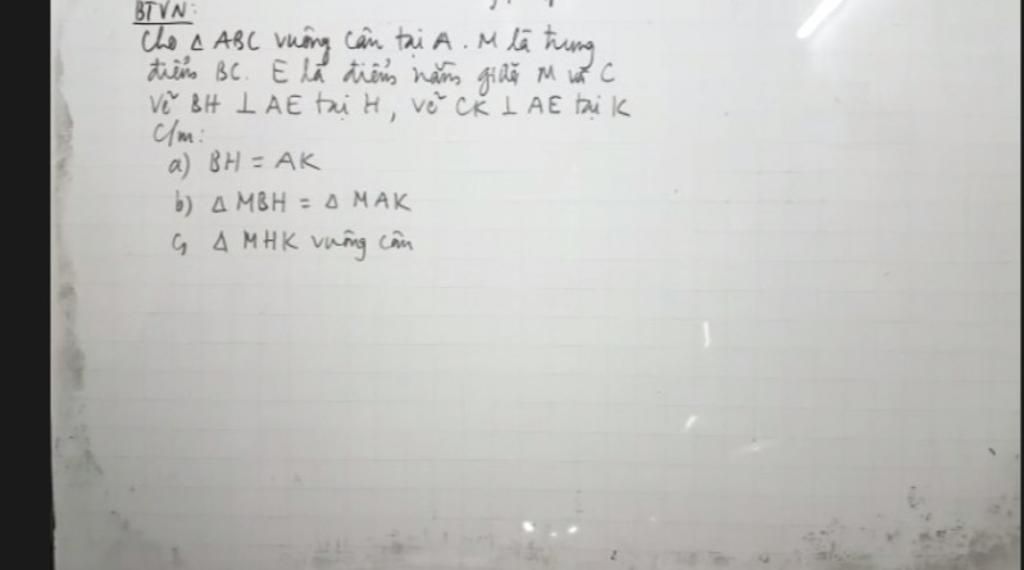 BTVN:
Cho Δ ABC vuông cân tại A. M là trung
điểm BC. E là điểm nằm giữa M và C
Vẽ BH ⊥ AE tại H, vẽ CK ⊥ AE tại K
C/m:
a) BH = AK
b) Δ MBH = Δ MAK
c) Δ MHK vuông cân